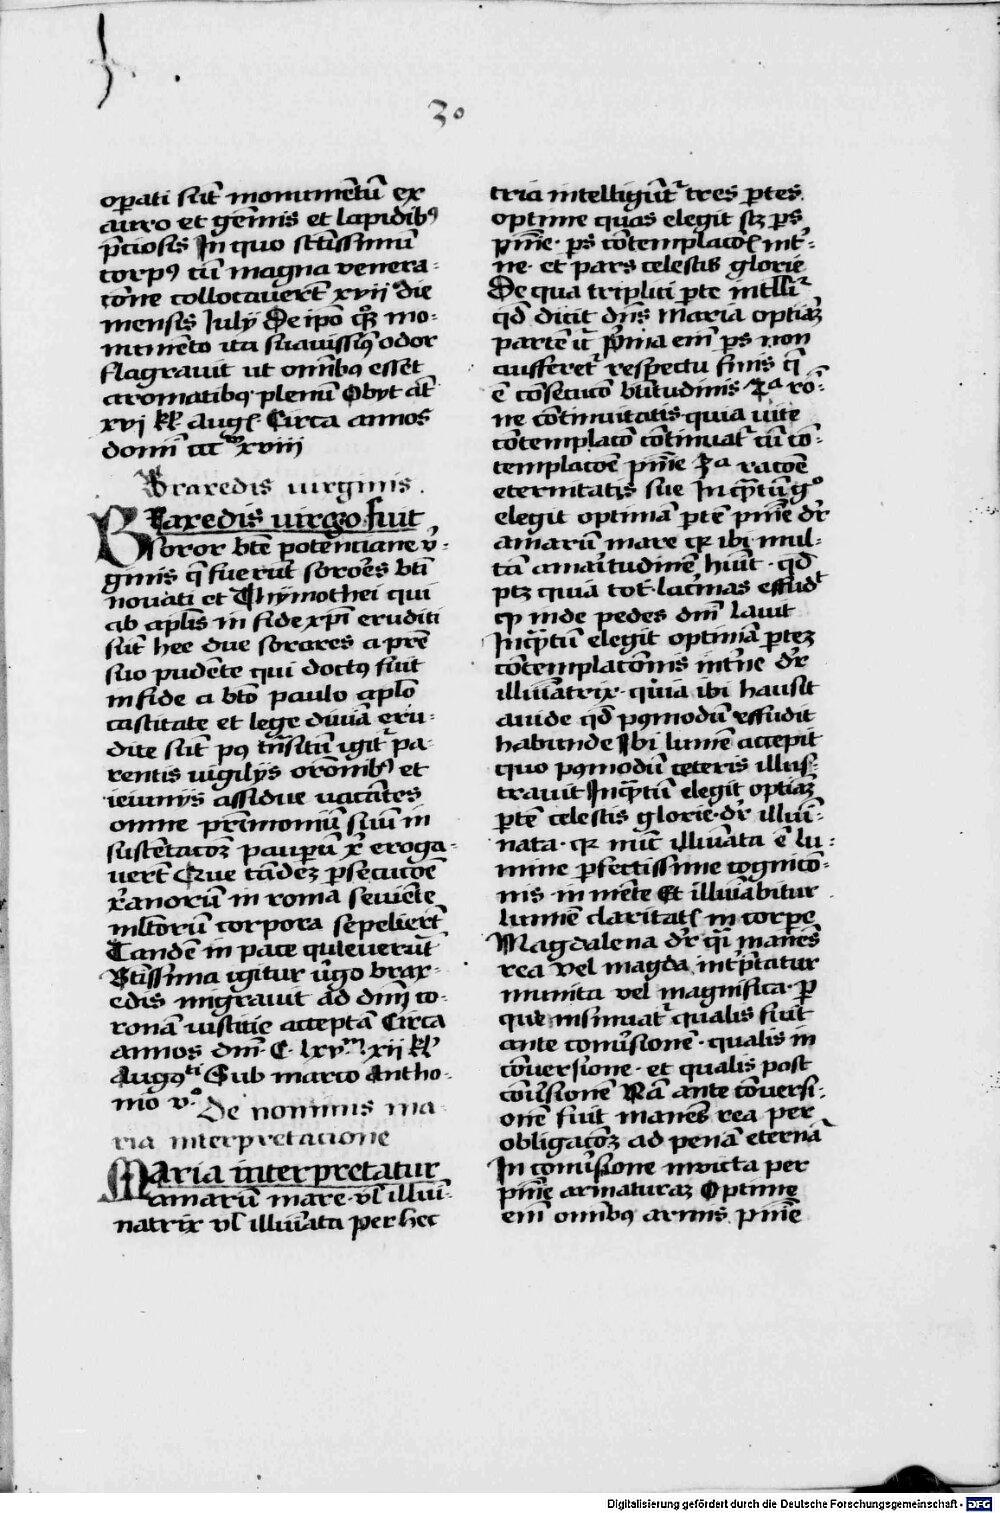 30
oꝑati sūt monumētū ex
auro et gēmis et lapidibꝰ
p̄ciosis In quo sctīssimū
corpꝰ cū magna venera-
cōne collocauerūt xvij die
mensis July De ip̄o qͥdē mo-
numēto ita suauissimꝰ odor
flagrauit ut om̄ibꝰ esset
aromatibꝰ plenū Obyt āt
xvj kl̄ Augꝰ Circa annos
domī xviij
Braxedis uirginis
BRaxedis uirgo fuit
soror btē potenciane v̄-
ginis q̄ fuerūt sorōes btī
nouati et Thymothei qui
ab apl̄is in fide xp̄i eruditi
sūt hee due sorores a p̄re
suo pudēte qui doctꝰ fuit
in fide a bt̄o paulo apl̄o
castitate et lege diuīa eru-
dite sūt pꝰ trāsitū igit̄ pa-
rentis vigilijs orōnibꝰ et
ieiunijs assidue uacātes
omne prīmoniū suū in
sustētacōꝫ pauperū xp̄i eroga-
uerūt Que tādeꝫ ꝑsecucōe
xp̄ianorū in roma seuiēte
ml̄torū corpora sepelierūt
Tandē in pace quieuerūt
Btīssima igitur v̄go brax-
edis migrauit ad dnm̄ co-
ronā iusticie acceptā Circa
annos dnī C lxvᵐ xij kl̄
Augꝰti Sub marco Antho-
nio vͦ
De nominis ma-
ria interpretacione
MAria interpretatur
amarū mare vl̄ illuīn-
natrix vl̄ illuīata per hec
tria intelligūt̄ tres ꝑtes
optime quas elegit scꝫ ꝑs
pnīe ꝑs cōtemplacōꝭ int̄-
ne et pars celestis glorie
De qua triplici ꝑte intll̄r
qd̄ dicit dn̄s Maria optīaꝫ
partē ꝛc̄ Prima em̄ ꝑs non
aufferet̄ respectu finis q̄
ē cōsecucō btītudinis 2ᵃ rō-
ne cōtinuitatis quia uite
cōtemplacō cōtinuat̄ cū cō-
templacōe pnīe 3ᵃ racōe
eternitatis sue Inqͣtū gͦ
elegit optimā ꝑtē pnīe dr̄
amarū mare qꝛ ibi mul-
tā amaritudinē hūit qd̄
ptꝫ quia tot lacͥmas effudᵗ
ꝙ inde pedes dnī lauit
Inqͣtū elegit optimā ꝑteꝫ
cōtemplacōnis int̄ne dr̄
illuīatrix quia ibi hausit
auide qd̄ pꝰmodū effudit
habunde Ibi lumē accepit
quo pꝰmodū ceteris illus-
trauit Inqͣtū elegit optiaꝫ
ꝑtē celestis glorie dr̄ illuīn-
nata qꝛ nūc illuīata ē lu-
mine ꝑfectissime cognicō-
nis in mēte Et illuīabitur
lumīe claritatꝭ in corpe
Magdalena dr̄ qͣsi manēs
rea vel magda int̄p̄tatur
munita vel magnifica ꝑ
que insinuat̄ qualis fuit
ante conūsionē qualis in
cōuersione et qualis post
conūsionē Nā ante cōuersi-
onē fuit manēs rea per
obligacōꝫ ad penā eternā
In conūsione inuicta per
pnīe armaturaꝫ Optime
em̄ omībꝰ armis pnīe
Digitalisierung gefördert durch die Deutsche Forschungsgemeinschaft - DFG